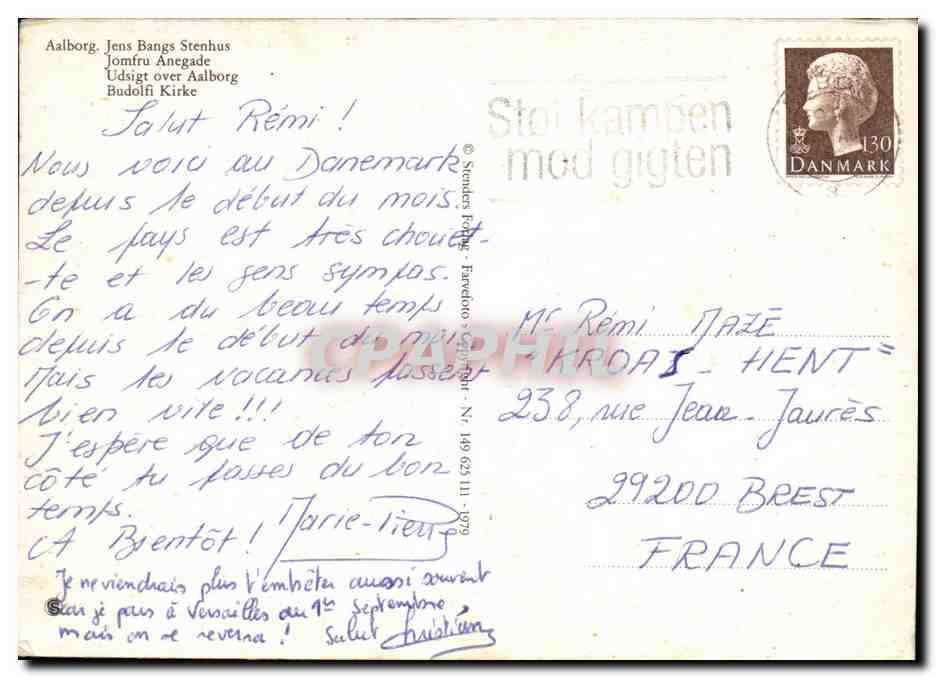 Aalborg. Jens Bangs Stenhus
Jomfru Anegade
Udsigt over Aalborg
Budolfi Kirke
Salut Rémi !
Nous voici au Danemark
depuis le début du mois.
Le pays est très chouet-
-te et les gens sympas.
On a du beau temps
depuis le début du mois
Mais les vacances passent
bien vite !!!
J'espère que de ton
côté tu passes du bon
temps.
A Bientôt ! Marie-Pierre
Je ne viendrais plus t'embêter aussi souvent
car je pars à Versailles au 1er Septembre
mais on se reverra ! Salut Christian
© Stenders Forlag - Farvefoto Copyright - Nr. 149 625 111 - 1979
Støt kampen
mod gigten
130
DANMARK
CPAPHIL
Mr Rémi MAZÉ
"KROAZ - HENT"
238, rue Jean-Jaurès
29200 BREST
FRANCE